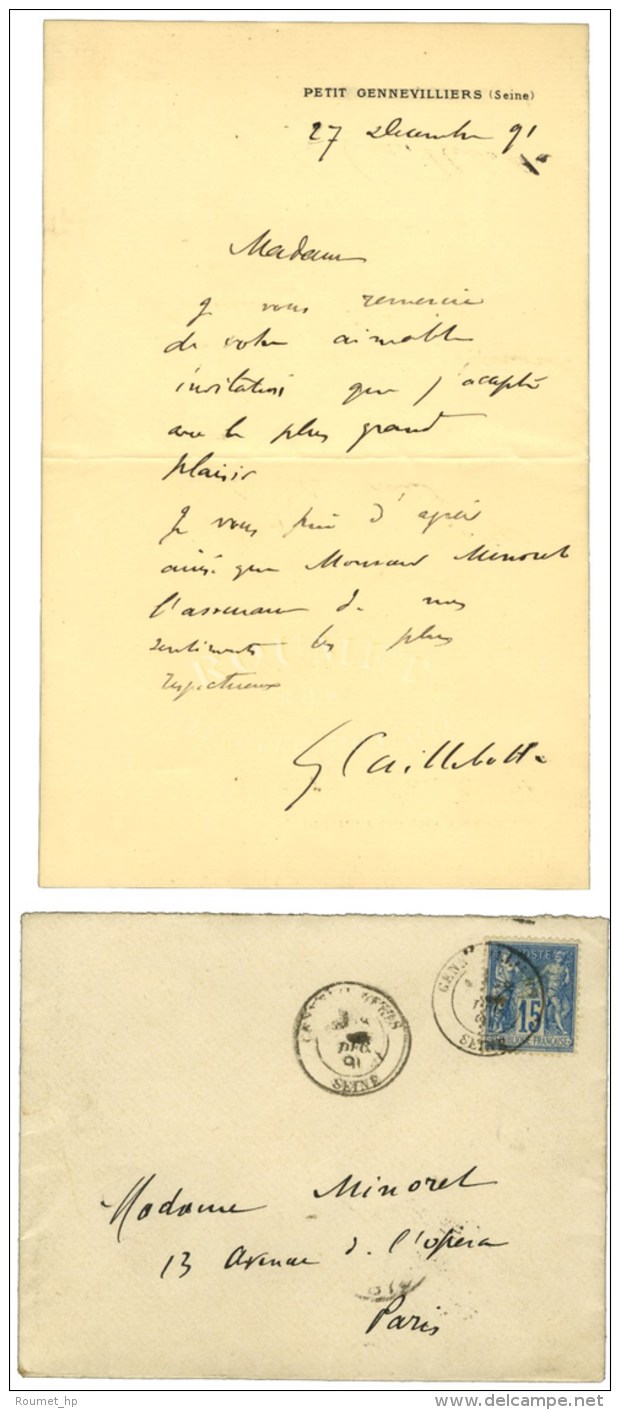 PETIT GENNEVILLIERS (Seine)
27 Decembre 91
Madame
Je vous remercie
de votre aimable
invitation que j'accepte
avec le plus grand
plaisir
Je vous prie d'agréer
ainsi que Monsieur Minoret
l'assurance de mes
sentiments les plus
respectueux
G Caillebotte
GENNEVILLIERS
DEC
91
SEINE
GENNEVILLIERS
DEC
SEINE
POSTE
15
REPUBLIQUE FRANÇAISE
Madame Minoret
13 Avenue de l'opera
Paris
Roumet_hp
©delcampe.net